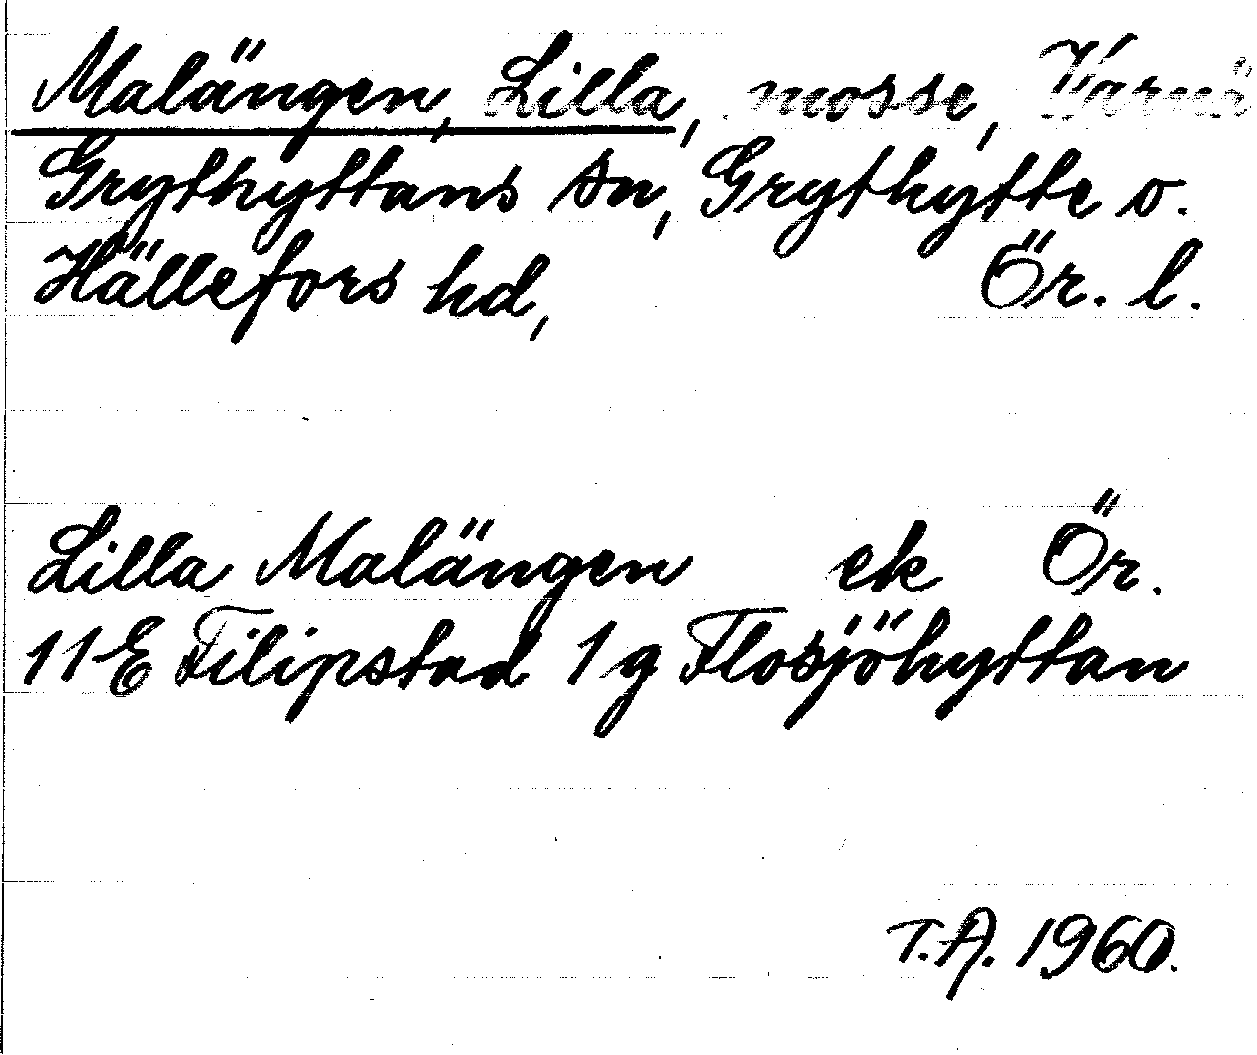 Malängen, Lilla, mosse,
Grythyttans sn, Grythytte o.
Hällefors hd, Ör. l.
Lilla Malängen ek Ör.
11E Filipstad 1g Flosjöhyttan
T.A. 1960.